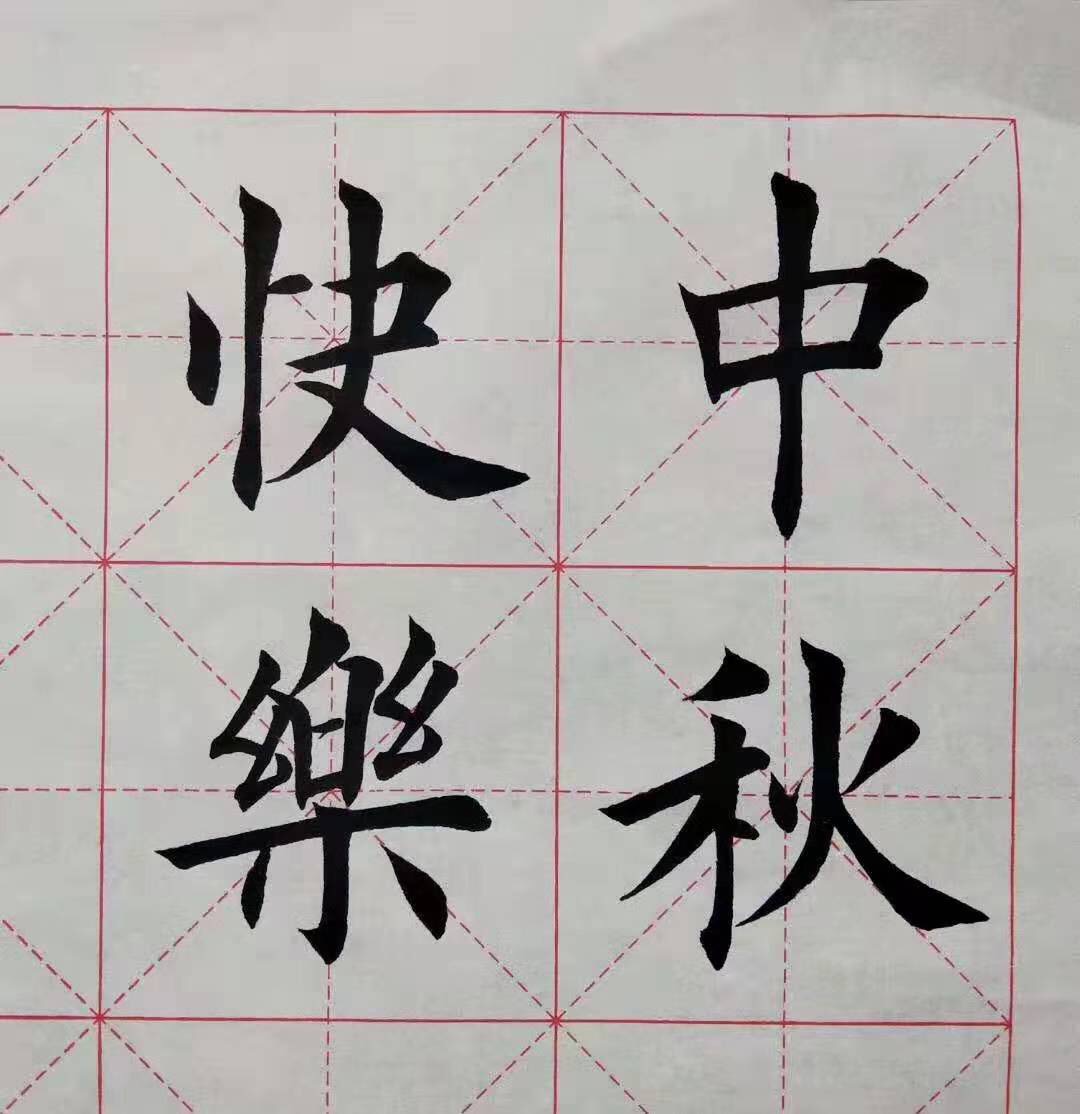 中秋
快樂